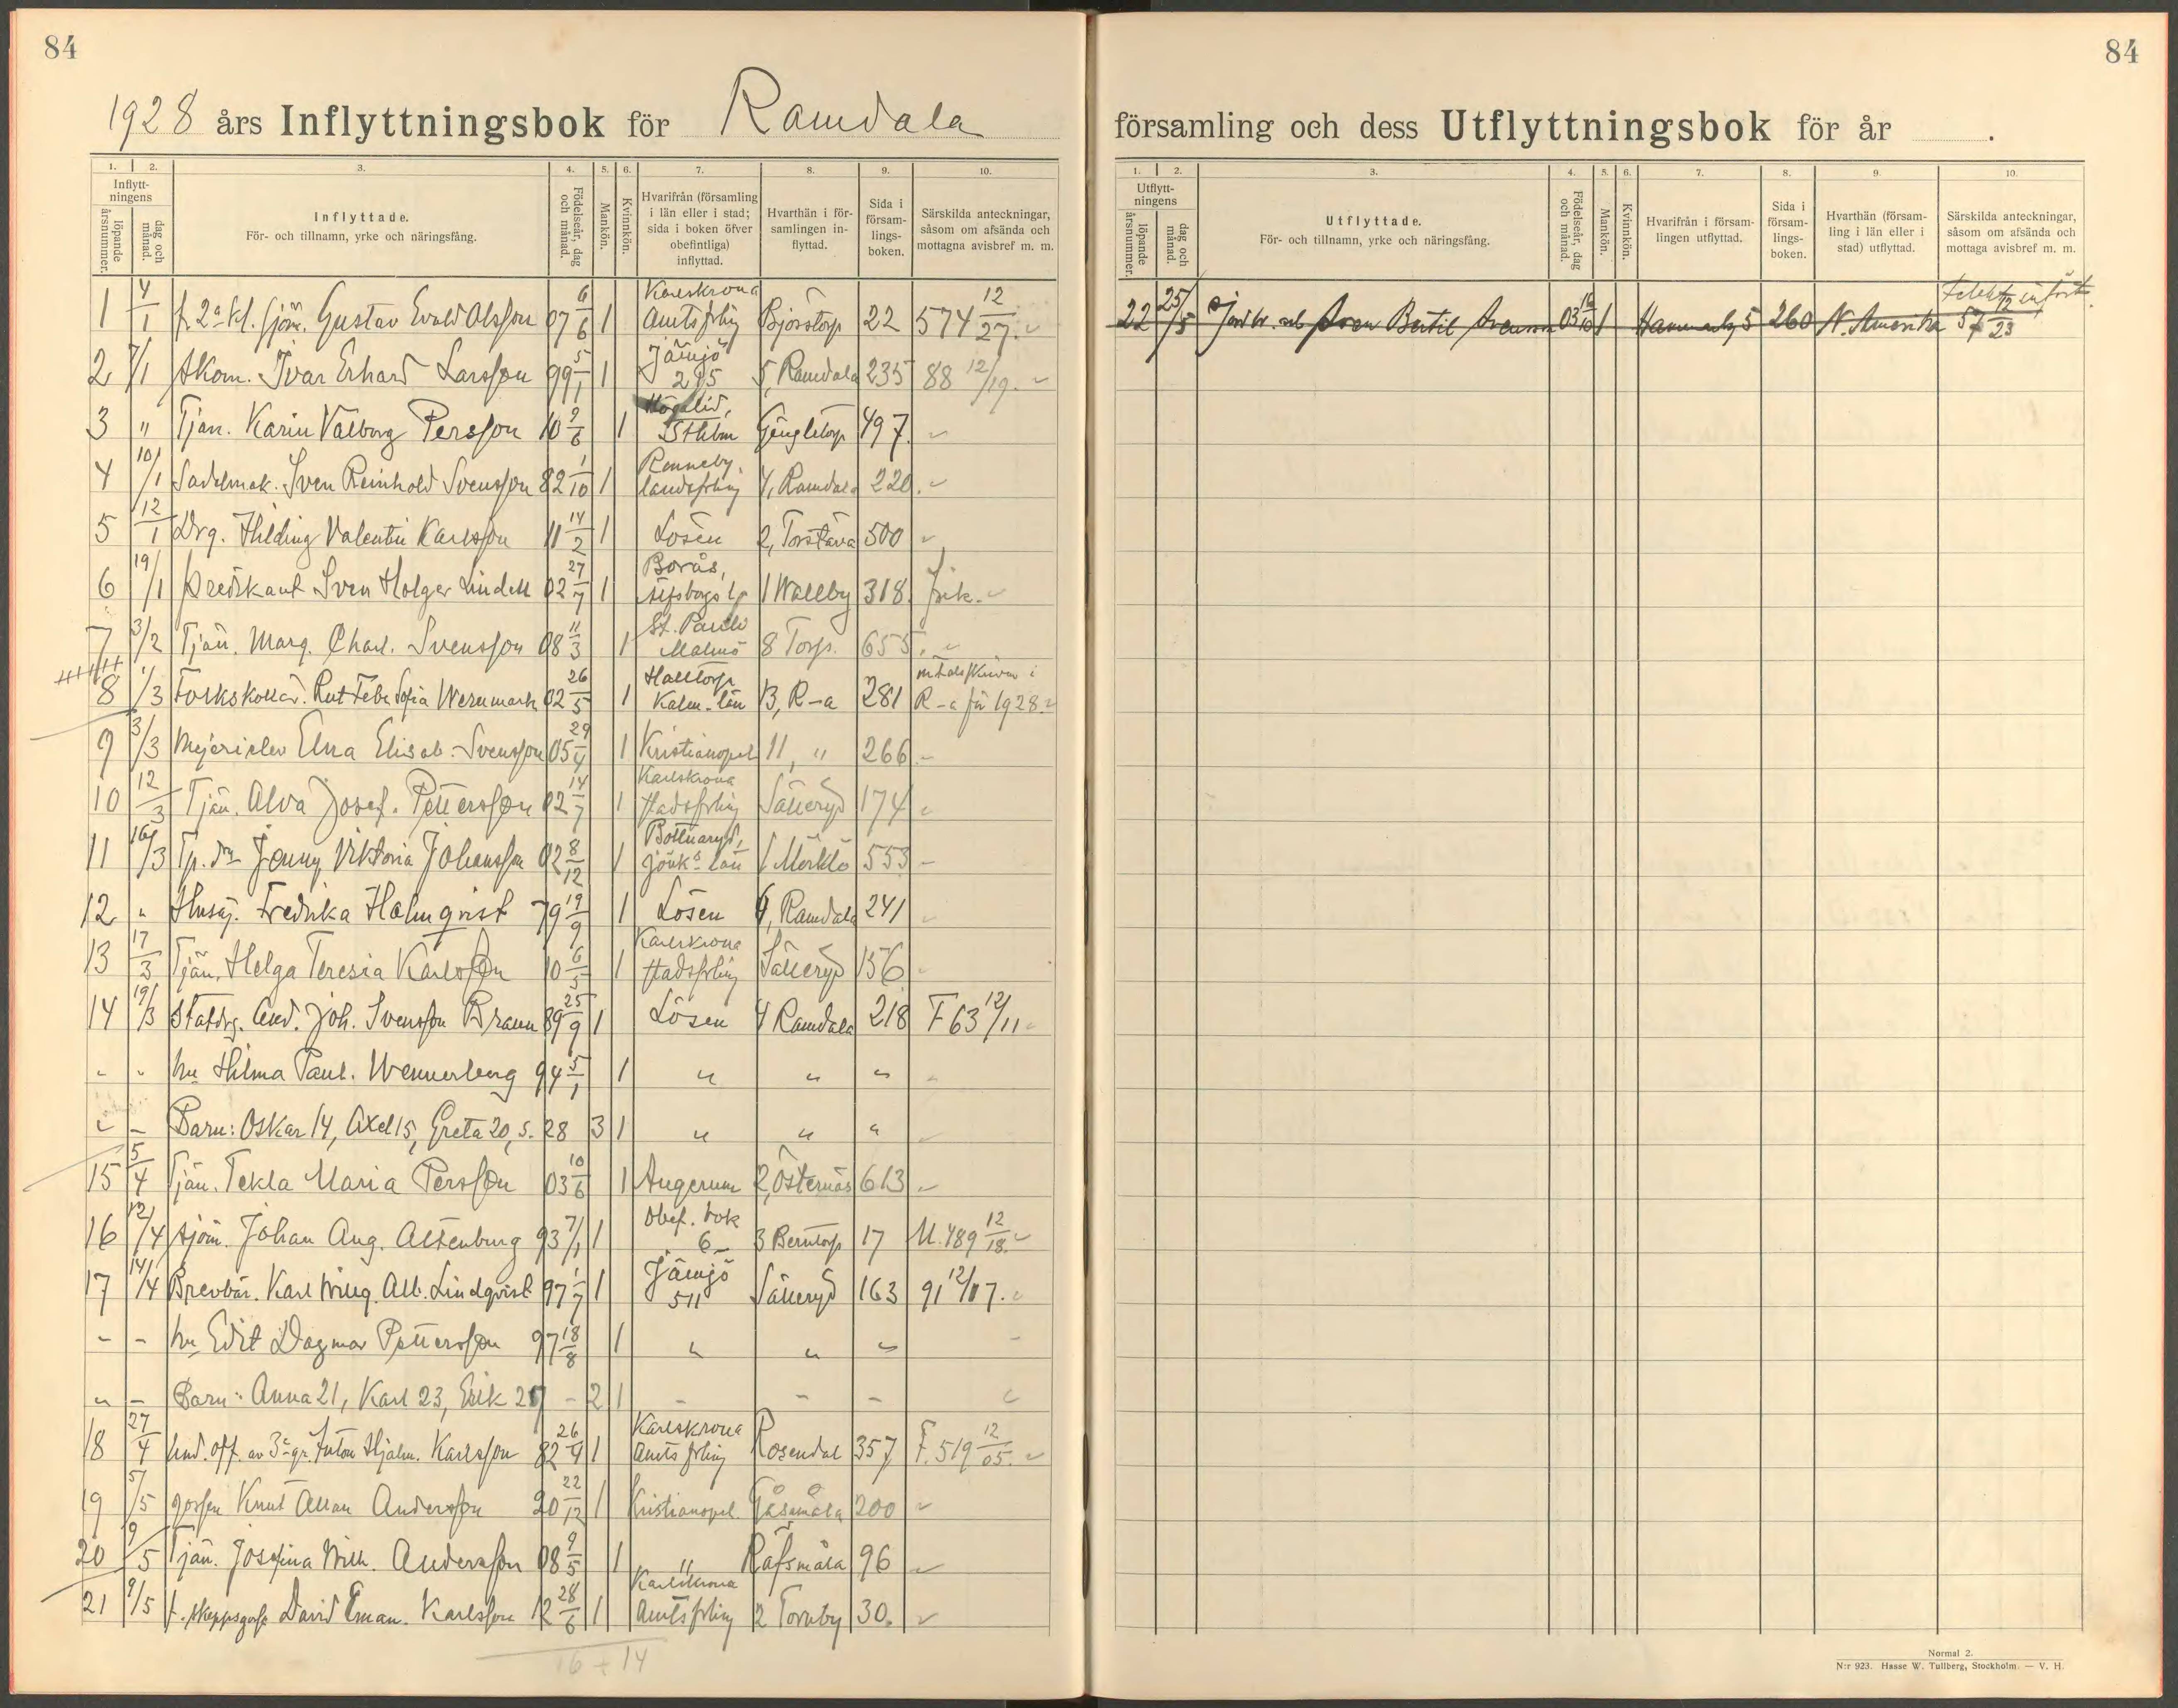 84
1928 års Inflyttningsbok för Ramdala
1. 2. 3. 4. 5. 6. 7. 8. 9. 10.
Inflyttningens
löpande årsnummer.
dag och månad.
Inflyttade.
För- och tillnamn, yrke och näringsfång.
Födelseår, dag och månad.
Mankön.
Kvinnkön.
Hvarifrån (församling i län eller i stad; sida i boken öfver obefintliga) inflyttad.
Hvarthän i församlingen inflyttad.
Sida i församlingsboken.
Särskilda anteckningar, såsom om afsända och mottagna avisbref m. m.
1 4/1 f. 2a kl. sjöm. Gustav Evald Olsson 07 6/6 1 Karlskrona Amtsförslg Björstorp 22 574 12/27.
2 7/1 Skom. Ivar Erhard Larsson 99 5/1 1 Jämjö 295 5, Ramdala 235 88 12/19.
3 " Tjän. Karin Valborg Persson 10 9/6 1 Högalid, Sthlm Gängletorp 497.
4 10/1 Sadelmak. Sven Reinhold Svensson 82 1/10 1 Ronneby landsförslg 4, Ramdala 220.
5 12/1 Drg. Hilding Valentin Karlsson 11 14/2 1 Lösen 2, Torstäva 500
6 19/1 Predikant Sven Holger Lindell 02 27/7 1 Borås, Älfsborgs l. 1 Wallby 318. frik.
7 3/2 Tjän. Marg. Charl. Svensson 08 11/3 1 St. Pauli Malmö 8 Torp. 655.
8 1/3 Folkskollär. Rut Febe Sofia Wernmark 02 26/5 1 Halltorp Kalm. län 13, R-a 281 mtalsskriven i R-a för 1928.
9 3/3 Mejerielev Elna Elisab. Svensson 05 29/4 1 Kristianopel 11, " 266
10 12/3 Tjän. Alva Josef. Pettersson 02 14/7 1 Karlskrona stadsförslg Sälleryd 174
11 16/3 Tp. drg Jenny Viktoria Johansson 02 8/12 1 Bottnaryd, Jönk. län 1 Mörklö 553
12 " Husäg. Fredrika Holmqvist 79 19/9 1 Lösen 4, Ramdala 241
13 17/3 Tjän. Helga Teresia Karlsson 10 6/5 1 Karlskrona stadsförslg Sälleryd 156
14 19/3 Statdrg. And. Joh. Svensson Braun 89 25/9 1 Lösen 4 Ramdala 218 F 63 12/11
" " hu Hilma Paul. Wennerberg 94 5/1 1 " " "
" - Barn: Oskar 14, Axel 15, Greta 20, s. 28 3 1 " " "
15 5/4 Tjän. Tekla Maria Persson 03 10/6 1 Augerum 2, Östernäs 613
16 12/4 Sjöm. Johan Aug. Altenburg 93 7/1 1 Obef. bok 6 3 Berntorp 17 U. 489 12/18.
17 14/4 Brevbär. Karl Aug. Alb. Lindqvist 97 1/7 1 Jämjö 511 Sälleryd 163 91 12/07.
- - hu Edit Dagmar Pettersson 97 18/8 1 " " "
" - Barn: Anna 21, Karl 23, Erik 27 - 2 1 - - -
18 27/4 Und. off. av 3e gr. Anton Hjalm. Karlsson 82 26/4 1 Karlskrona Amtsförslg Rosendal 357 F. 519 12/05.
19 5/5 gossen Knut Allan Andersson 20 22/12 1 Kristianopel Gåsamåla 200
20 9/5 Tjän. Josefina Wilh. Andersson 08 9/5 1 " Räfsmåla 96
21 9/5 f. skeppsgosse David Eman. Karlsson 12 28/6 1 Karlskrona Amtsförslg 2 Tornby 30.
16 + 14
84
församling och dess Utflyttningsbok för år .
1. 2. 3. 4. 5. 6. 7. 8. 9. 10.
Utflyttningens
löpande årsnummer.
dag och månad.
Utflyttade.
För- och tillnamn, yrke och näringsfång.
Födelseår, dag och månad.
Mankön.
Kvinnkön.
Hvarifrån i församlingen utflyttad.
Sida i församlingsboken.
Hvarthän (församling i län eller i stad) utflyttad.
Särskilda anteckningar, såsom om afsända och mottaga avisbref m. m.
22 25/5 Sven Bertil Svensson 03 1 5 260 N. Amerika 57 12/23
Normal 2.
N:r 923. Hasse W. Tullberg, Stockholm. — V. H.